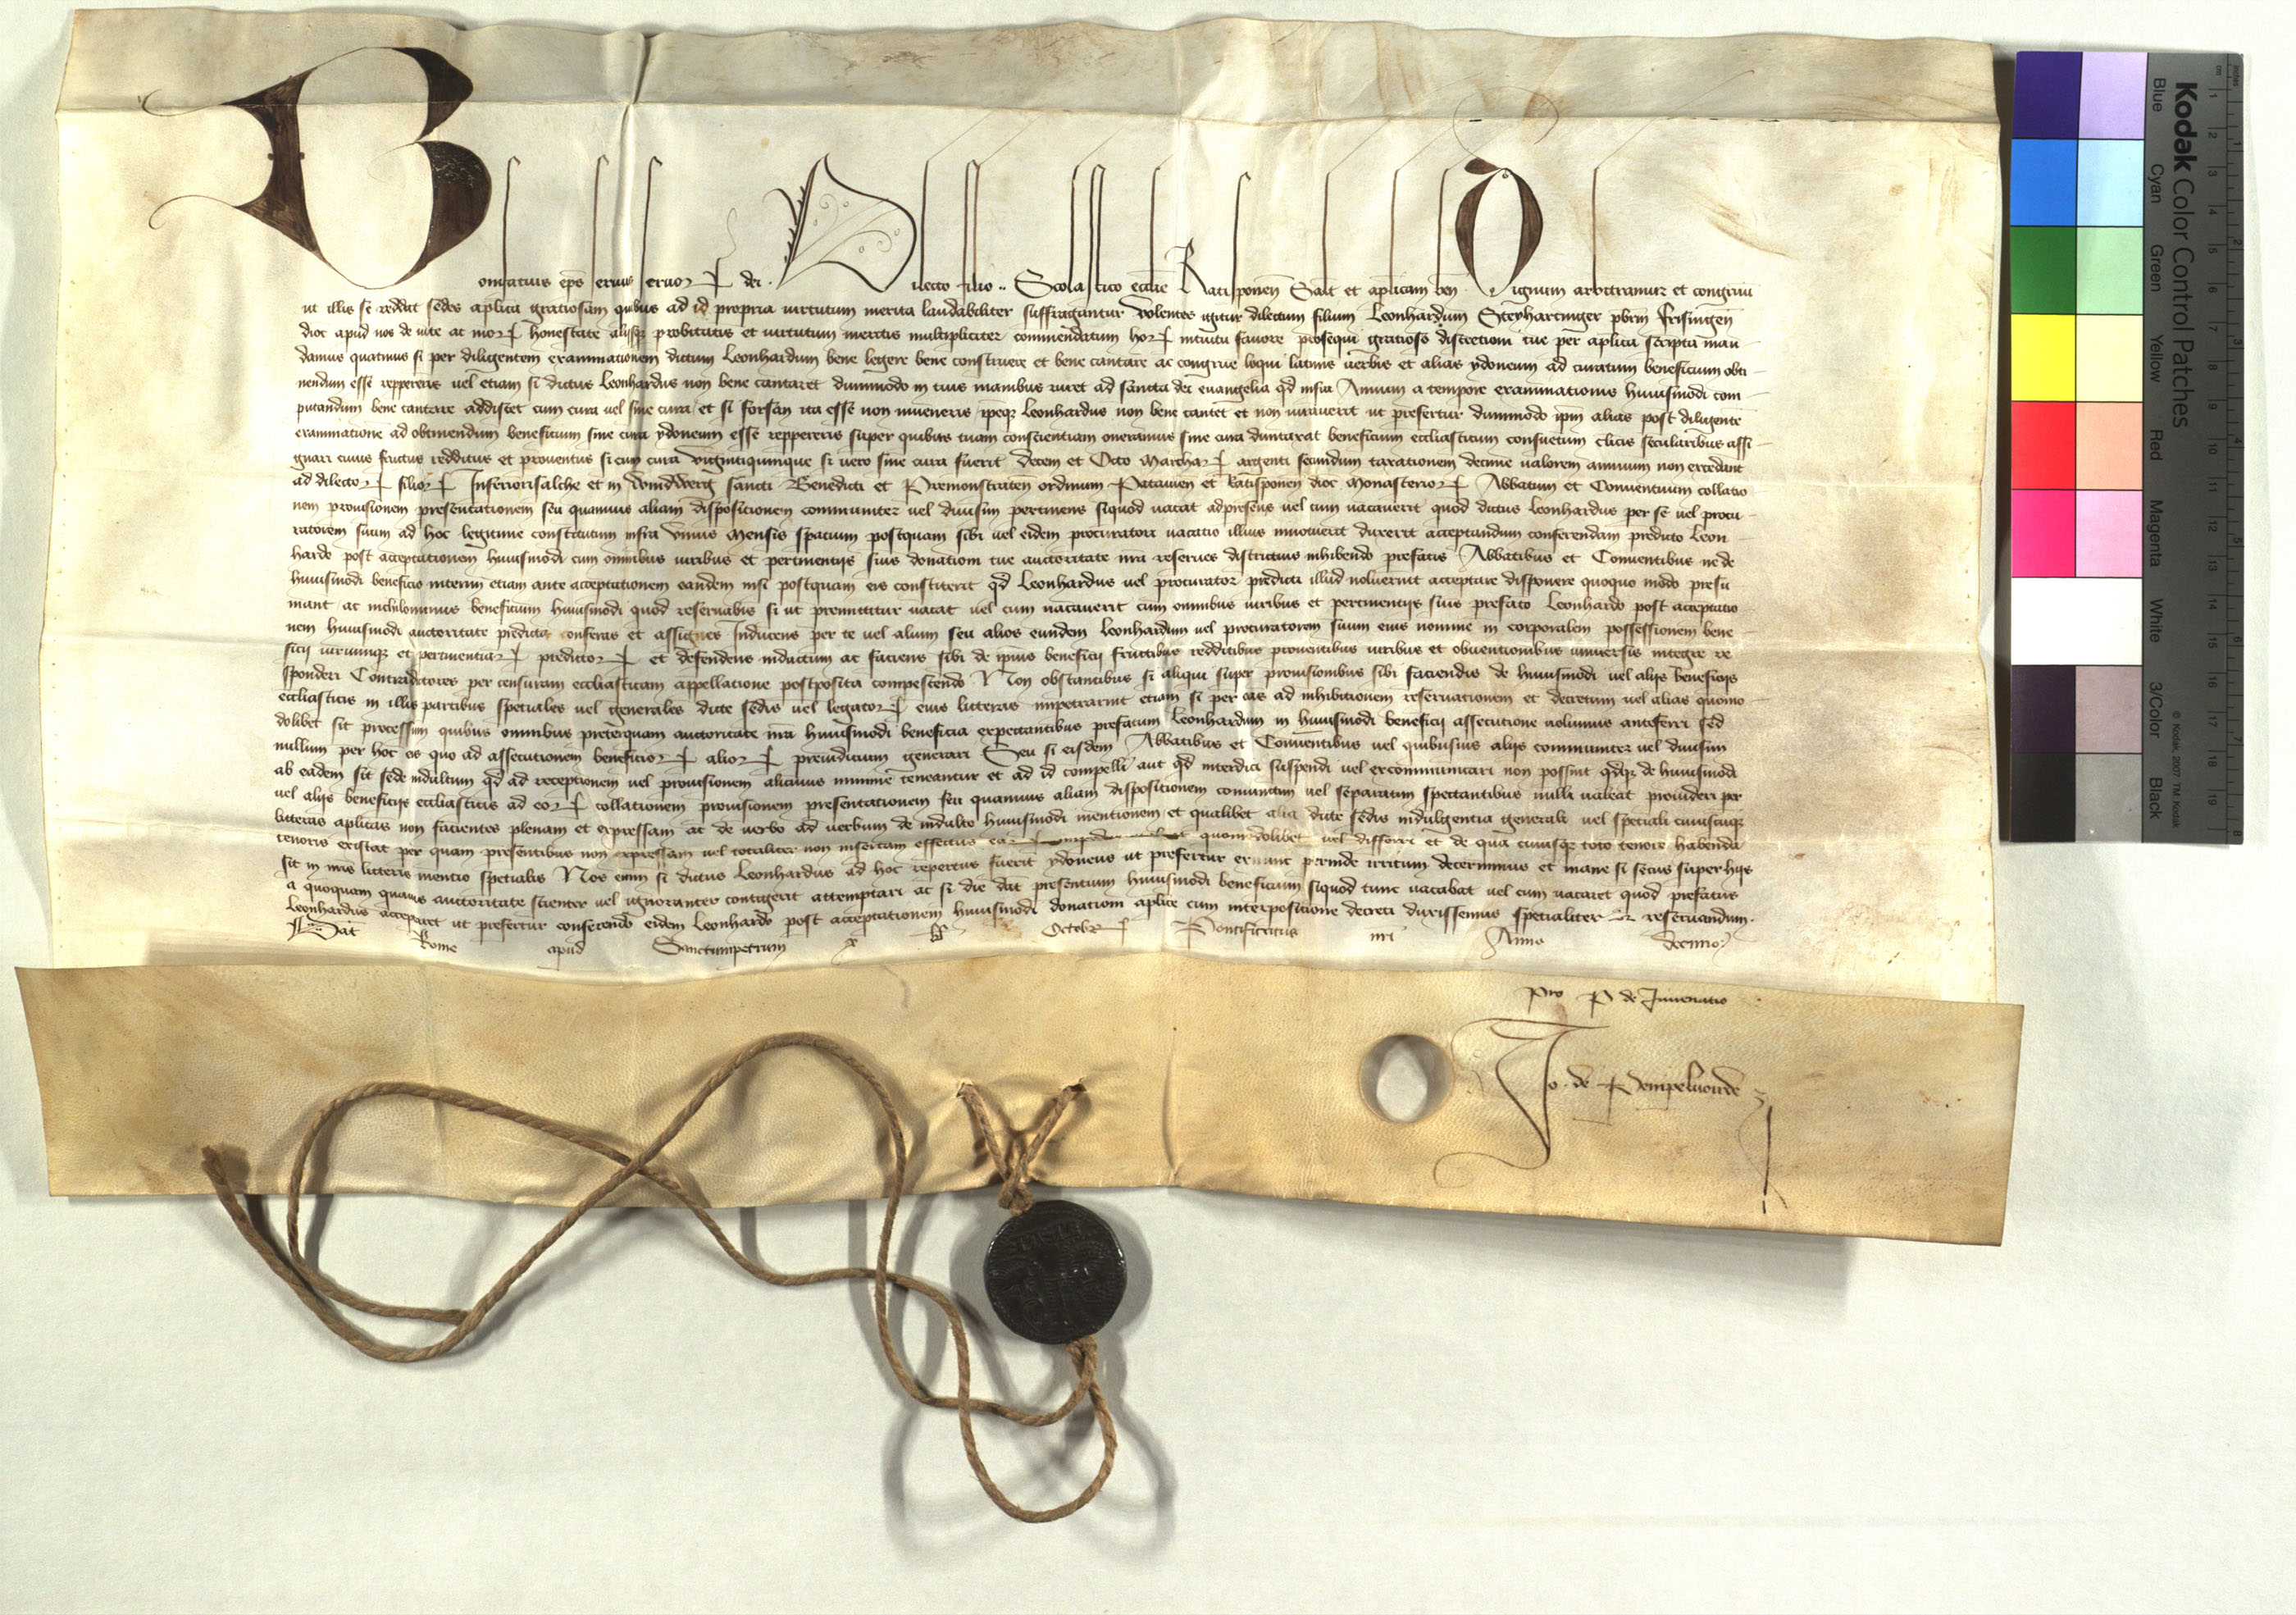 Bonifatius ep̄s seruus seruoꝝ dei. Dilecto filio .. Scolastico ecctīe Ratisponeñ Salt̄ et apl̄icam ben̄. Dignum arbitramur et congruū
ut illis se reddat sedes apl̄ica gratiosam quibus ad id propria uirtutum merita laudabiliter suffragantur Volentes igitur dilectum filium Leonhardum Steyhartinger pbr̄m Frisingen̄
dioc̄ apud nos de uite ac moꝝ honestate alijsqꝫ probitatis et uirtutum meritis multipliciter commendatum hoꝝ intuitu fauore prosequi gratioso discretioni tue per apl̄ica scripta man-
damus quatinus si per diligentem examinationem dictum Leonhardum bene legere bene construere et bene cantare ac congrue loqui latinis uerbis et alias ydoneum ad curatum beneficium obti-
nendum esse reppereris uel etiam si dictus Leonhardus non bene cantaret dummodo in tuis manibus iuret ad sancta dei euangelia qd̄ infra Annum a tempore examinationis huiusmodi com-
putandum bene cantare addiscet cum cura uel sine cura, et si forsan ita esse non inueneris ip̄eqꝫ Leonhardus non bene cantet et non iurauerit ut prefertur dummodo ip̄m alias post diligentē
examinatione ad obtinendum beneficium sine cura ydoneum esse reppereris super quibus tuam conscientiam oneramus sine cura duntaxat beneficium eccl̄iasticum consuetum cl̄icis secularibus assi-
gnari cuius fructus redditus et prouentus si cum cura vigintiquinque si uero sine cura fuerit decem et Octo Marchaꝝ argenti secundum taxationem decime ualorem annuum non excedant
ad dilectoꝝ filioꝝ Inferiorisalche et in Windberg sancti Benedicti et Premonstraten̄ ordinum Patauien̄ et Ratisponen̄ dioc̄ Monasterioꝝ Abbatum et Conuentuum collatio
nem prouisionem presentationem seu quamuis aliam dispositionem communiter uel diuisim pertinens siquod uacat adpresens uel cum uacauerit quod dictus Leonhardus per se uel procu-
ratorem suum ad hoc legitime constitutum infra vnius Mensis spatium postquam sibi uel eidem procuratori uacatio illius innotuerit duxerit acceptandum conferendam predicto Leon-
hardo post acceptationem huiusmodi cum omnibus iuribus et pertinentijs suis donationi tue auctoritate nr̄a reserues districtius inhibendo prefatis Abbatibus et Conuentibus ne de
huiusmodi beneficio interim etiam ante acceptationem eandem nisi postquam eis constiterit qd̄ Leonhardus uel procurator predicti illud noluerint acceptare disponere quoquo modo presu
mant ac nichilominus beneficium huiusmodi quod reseruabis si ut premittitur uacat uel cum uacauerit cum omnibus iuribus et pertinentijs suis prefato Leonhardo post acceptatio
nem huiusmodi auctoritate predicta conferas et assignes Inducens per te uel alium seu alios eundem Leonhardum uel procuratorem suum eius nomine in corporalem possessionem bene-
ficij iuriumqꝫ et pertinentiaꝝ predictoꝝ et defendens inductum ac faciens sibi de ip̄ius beneficij fructibus redditibus prouentibus iuribus et obuentionibus uniuersis integre re
sponderi Contradictores per censuram eccl̄iasticam appellatione postposita compescendo Non obstantibus si aliqui super prouisionibus sibi faciendis de huiusmodi uel alijs beneficijs
eccl̄iasticis in illis partibus speciales uel generales dicte sedis uel legatoꝝ eius litteras impetrarint etiam si per eas ad inhibitionem reseruationem et decretum uel alias quomo-
dolibet sit processum quibus omnibus preterquam auctoritate nr̄a huiusmodi beneficia expectantibus prefatum Leonhardum in huiusmodi beneficij assecutione uolumus anteferri sed
nullum per hoc eis quo ad assecutionem beneficioꝝ alioꝝ preiudicium generari Seu si eisdem Abbatibus et Conuentibus uel quibusuis alijs communiter uel diuisim
ab eadem sit sede indultum qd̄ ad receptionem uel prouisionem alicuius minime teneantur et ad id compelli aut qd̄ interdici suspendi uel excommunicari non possint qd̄qꝫ de huiusmodi
uel alijs beneficijs eccl̄iasticis ad eoꝝ collationem prouisionem presentationem seu quamuis aliam dispositionem coniunctim uel separatim spectantibus nulli ualeat prouideri per
litteras apl̄icas non facientes plenam et expressam ac de uerbo ad uerbum de indulto huiusmodi mentionem et qualibet alia dicte sedis indulgentia generali uel speciali cuiuscunqꝫ
tenoris existat per quam presentibus non expressam uel totaliter non insertam effectus eaꝝ impediri ualeat quomodolibet uel differri et de qua cuiusqꝫ toto tenore habenda
sit in nr̄is litteris mentio specialis Nos enim si dictus Leonhardus ad hoc repertus fuerit ydoneus ut prefertur exnunc perinde irritum decernimus et inane si secus super hijs
a quoquam quauis auctoritate scienter uel ignoranter contigerit attemptari ac si die dat̄ presentium huiusmodi beneficium siquod tunc uacabat uel cum uacaret quod prefatus
Leonhardus acceptaret ut prefertur conferendo eidem Leonhardo post acceptationem huiusmodi donationi apl̄ice cum interpositione decreti duxissemus specialiter reseruandum.
Dat̄ Rome apud Sanctumpetrum Octobꝝ Pontificatus nr̄i Anno decimo
Pro P de Iuuenatio
Jo. de Pempeluorde
Kodak Color Control Patches
Blue Cyan Green Yellow Red Magenta White 3/Color Black
© Kodak, 2007 TM: Kodak
inches 1 2 3 4 5 6 7 8
cm 1 2 3 4 5 6 7 8 9 10 11 12 13 14 15 16 17 18 19